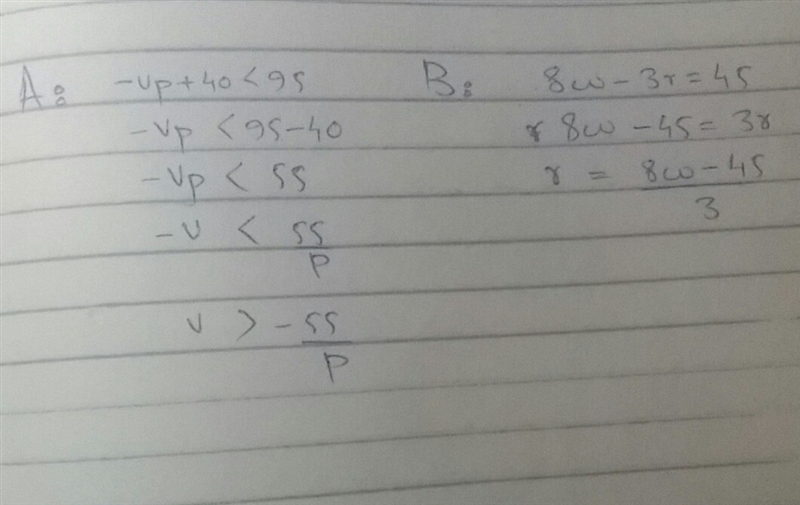 A: -vp+40<95
-vp <95-40
-vp < 55
-v < 55/p
v > -55/p
B: 8w-3r=45
r 8w-45=3r
r = 8w-45/3